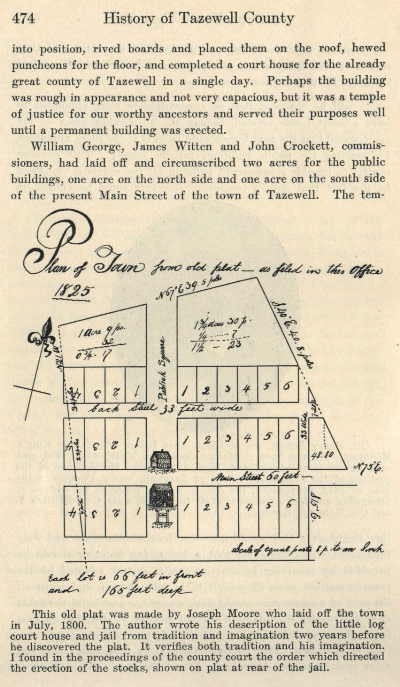 474 History of Tazewell County
into position, rived boards and placed them on the roof, hewed
puncheons for the floor, and completed a court house for the already
great county of Tazewell in a single day. Perhaps the building
was rough in appearance and not very capacious, but it was a temple
of justice for our worthy ancestors and served their purposes well
until a permanent building was erected.
William George, James Witten and John Crockett, commis-
sioners, had laid off and circumscribed two acres for the public
buildings, one acre on the north side and one acre on the south side
of the present Main Street of the town of Tazewell. The tem-
Plan of Town from old plat — as filed in this Office
1825
N 67° E 39.5 poles
S 40° E 40.8 poles
1 acre 9 po.
32
0¾. 17
1¾ acres 30 p.
¼ 7
1½ - 23
Publick Square
4 3 2 1
1 2 3 4 5 6
back Street 33 feet wide
4 3 2 1
1 2 3 4 5 6
33 wide
48.30
Main Street 60 feet
N 75 E.
4 3 2 1
1 2 3 4 5 6
Scale of equal parts 8 p. to an Inch
Each lot is 66 feet in front
and 165 feet deep
This old plat was made by Joseph Moore who laid off the town
in July, 1800. The author wrote his description of the little log
court house and jail from tradition and imagination two years before
he discovered the plat. It verifies both tradition and his imagination.
I found in the proceedings of the county court the order which directed
the erection of the stocks, shown on plat at rear of the jail.